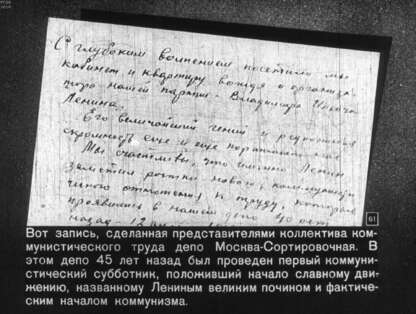 С глубоким волнением посетили мы
кабинет и квартиру вождя и организа-
тора нашей партии - Владимира Ильича
Ленина.
Его величайший гений и редкостная
скромность еще и еще поражают нас
Мы счастливы, что именно Ленин
заметил ростки нового, коммунисти-
чного отношения к труду, которое
проявилось в нашем депо 40 лет
назад - 12
61
Вот запись, сделанная представителями коллектива ком-
мунистического труда депо Москва-Сортировочная. В
этом депо 45 лет назад был проведен первый коммуни-
стический субботник, положивший начало славному дви-
жению, названному Лениным великим почином и фактиче-
ским началом коммунизма.